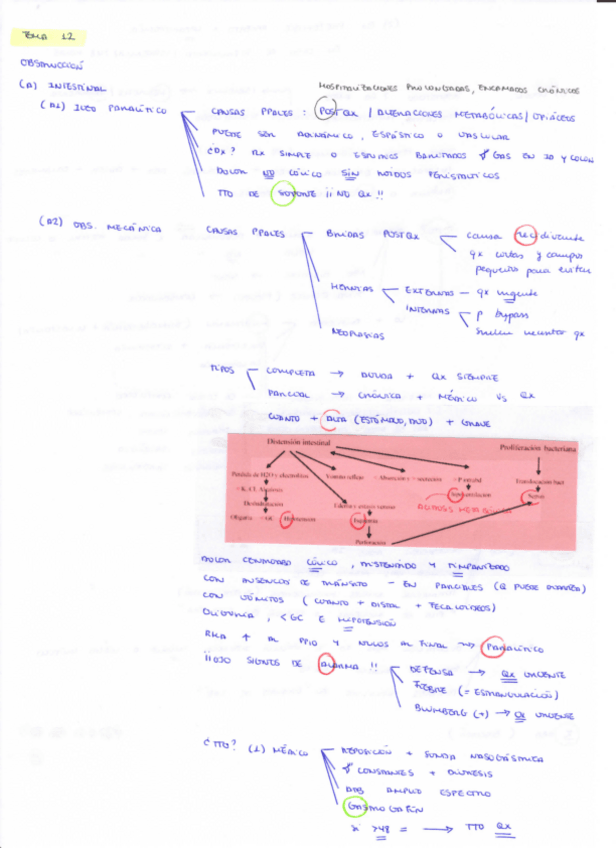 TEMA 12
OBSTRUCCIÓN
(A) INTESTINAL
HOSPITALIZACIONES PROLONGADAS, ENCAMADOS CRÓNICOS
(A1) ILEO PARALÍTICO
CAUSAS PPALES : POSTQX / ALTERACIONES METABÓLICAS / OPIÁCEOS
PUEDE SER ADINÁMICO, ESPÁSTICO O VASCULAR
¿DX? RX SIMPLE O ESTUDIOS BARITADOS GAS EN ID Y COLON
DOLOR NO CÓLICO SIN RUIDOS PERISTÁLTICOS
TTO DE SOPORTE ¡¡ NO QX !!
(A2) OBS. MECÁNICA
CAUSAS PPALES
BRIDAS POSTQX
causa recidivante
qx cortas y campos
pequeños para evitar
HERNIAS
EXTERNAS – qx urgente
INTERNAS
p bypass
suelen necesitar qx
NEOPLASIAS
TIPOS
COMPLETA → AGUDA + QX SIEMPRE
PARCIAL → CRÓNICA + MÉDICO VS QX
CUANTO + ALTA (ESTÓMAGO, ) + GRAVE
Distensión intestinal
Proliferación bacteriana
Pérdida de H2O y electrolitos
Vómito reflejo
Absorción y secreción
P intrabd
Translocación bact
Deshidratación
Hipoventilación
Sepsis
Edema y estasis venoso
Oliguria GC Hipotensión
Isquemia
Perforación
DOLOR CÓLICO, DISTENDIDO Y TIMPANIZADO
CON AUSENCIAS DE TRÁNSITO – EN PARCIALES (Q PUEDE DIARREA)
CON VÓMITOS (CUANTO + DISTAL + FECALOIDEOS)
OLIGURIA, < GC E HIPOTENSIÓN
RHA ↑ AL PPIO Y NULOS AL FINAL → PARALÍTICO
¡¡OJO SIGNOS DE ALARMA !!
DEFENSA → QX URGENTE
FIEBRE (= ESTRANGULACIÓN)
BLUMBERG (+) → QX URGENTE
¿TTO? (1) MÉDICO
REPOSICIÓN + SONDA NASOGÁSTRICA
CONSTANTES + DIURESIS
ATB AMPLIO ESPECTRO
GASTROGRAFÍN
si >48 = → TTO QX